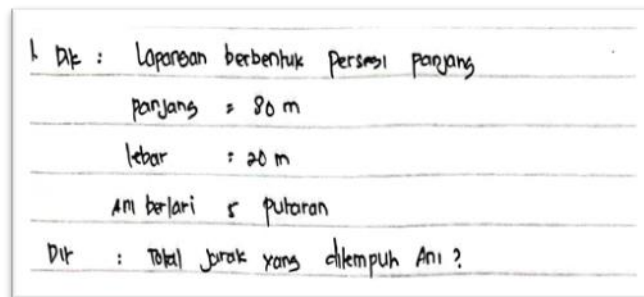 1. Dik : Lapangan berbentuk Persegi panjang
panjang = 80 m
lebar : 20 m
Ani berlari 5 putaran
Dit : Total jarak yang ditempuh Ani ?